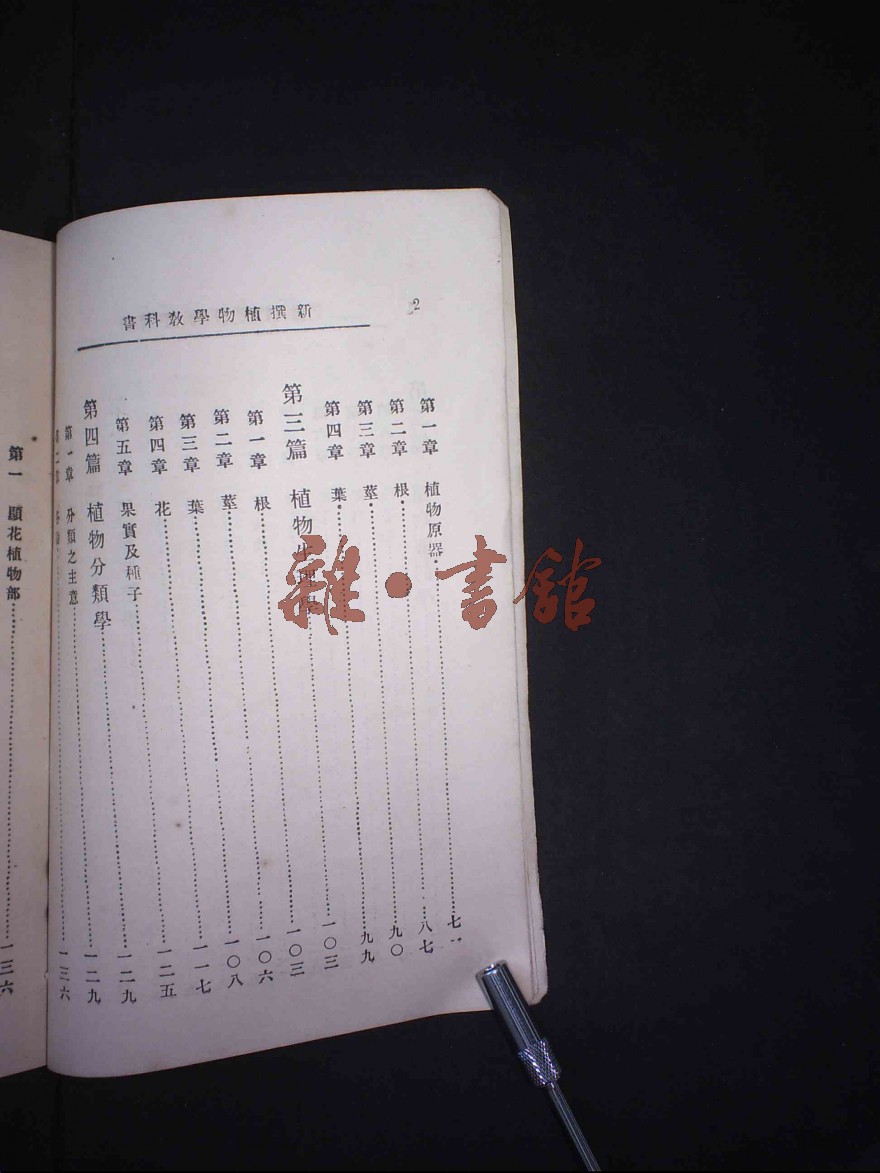 2
新撰植物學教科書
第一章 植物原器……七一
第二章 根……八七
第三章 莖……九〇
第四章 葉……九九
第三篇 植物生理學……一〇三
第一章 根……一〇三
第二章 莖……一〇六
第三章 葉……一〇八
第四章 花……一一七
第五章 果實及種子……一二五
第四篇 植物分類學……一二九
第一章 分類之主意……一二九
第二章……一三六
第一 顯花植物部……一三六
雜·書館